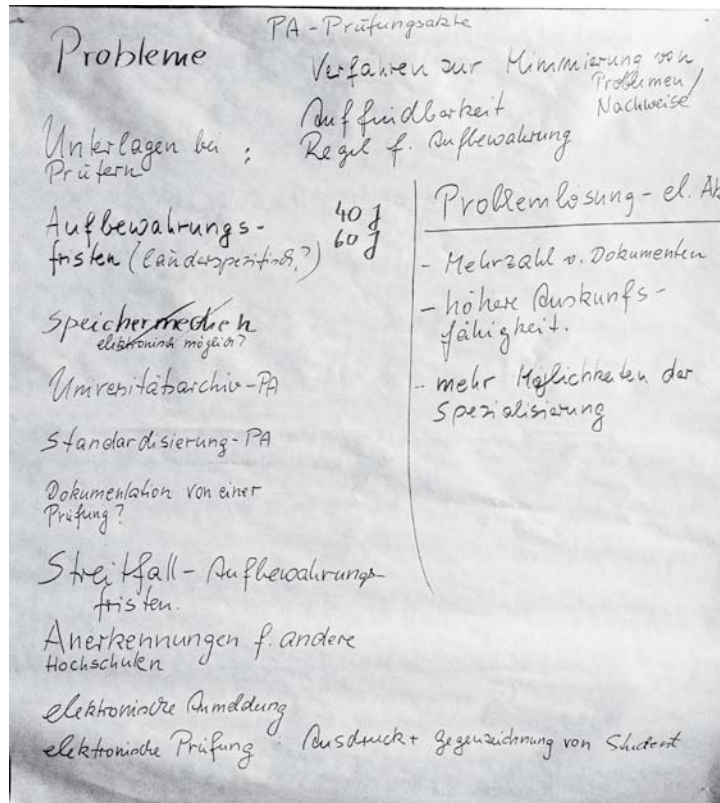 PA - Prüfungsakte
Probleme
Verfahren zur Mimmierung von
Problemen /
Nachweise
Auffindbarkeit
Unterlagen bei : Regel f. Aufbewahrung
Prüfern
Aufbewahrungs- 40 J
fristen (länderspezifisch?) 60 J
Speichermedien
elektronisch möglich?
Universitätsarchiv-PA
Standardisierung-PA
Dokumentation von einer
Prüfung?
Streitfall - Aufbewahrungs-
fristen.
Anerkennungen f. andere
Hochschulen
elektronische Anmeldung
elektronische Prüfung : Ausdruck + Gegenzeichnung von Student
Problemlösung - el. Ak
- Mehrzahl v. Dokumenten
- höhere Auskunfs-
fähigkeit.
- mehr Möglichkeiten der
Spezialisierung